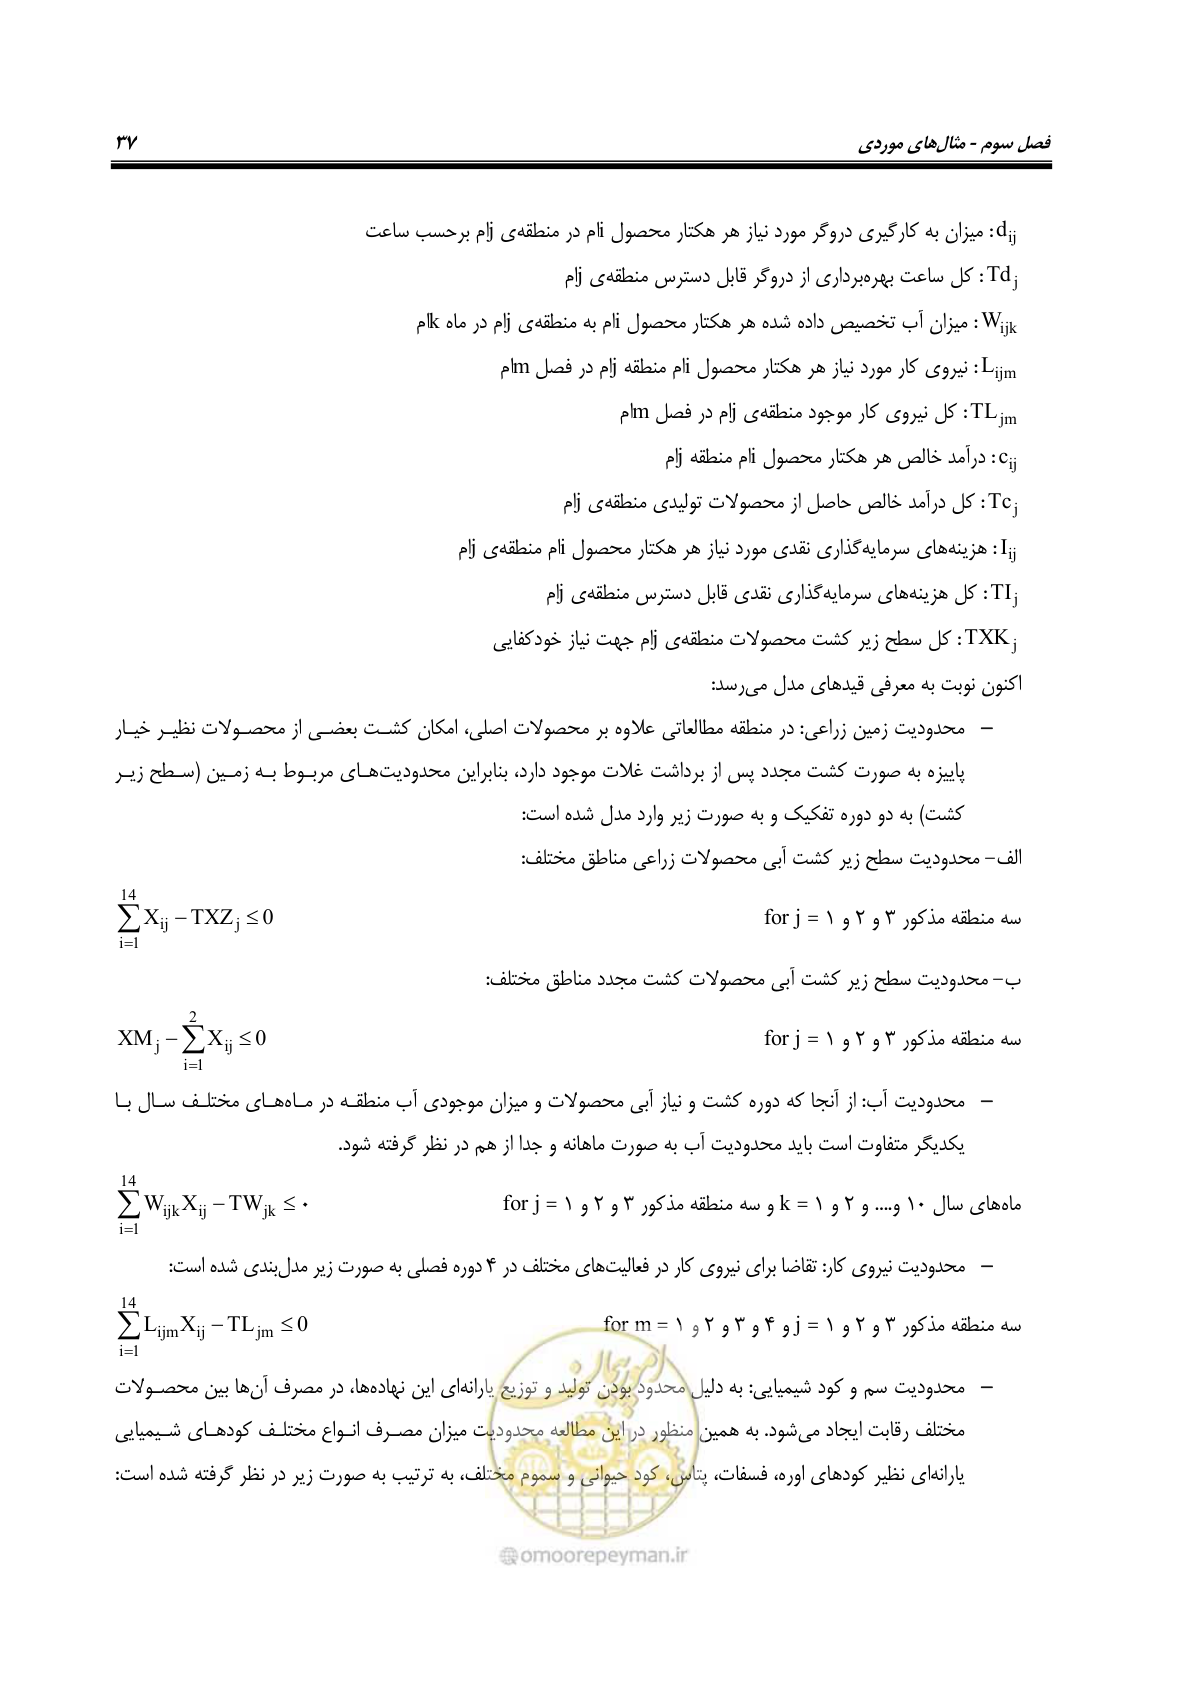 فصل سوم - مثال‌های موردی ۳۷
d_ij: میزان به کارگیری دروگر مورد نیاز هر هکتار محصول iام در منطقه‌ی jام برحسب ساعت
Td_j: کل ساعت بهره‌برداری از دروگر قابل دسترس منطقه‌ی jام
W_ijk: میزان آب تخصیص داده شده هر هکتار محصول iام به منطقه‌ی jام در ماه kام
L_ijm: نیروی کار مورد نیاز هر هکتار محصول iام منطقه jام در فصل mام
TL_jm: کل نیروی کار موجود منطقه‌ی jام در فصل mام
c_ij: درآمد خالص هر هکتار محصول iام منطقه jام
Tc_j: کل درآمد خالص حاصل از محصولات تولیدی منطقه‌ی jام
I_ij: هزینه‌های سرمایه‌گذاری نقدی مورد نیاز هر هکتار محصول iام منطقه‌ی jام
TI_j: کل هزینه‌های سرمایه‌گذاری نقدی قابل دسترس منطقه‌ی jام
TXK_j: کل سطح زیر کشت محصولات منطقه‌ی jام جهت نیاز خودکفایی
اکنون نوبت به معرفی قیدهای مدل می‌رسد:
– محدودیت زمین زراعی: در منطقه مطالعاتی علاوه بر محصولات اصلی، امکان کشت بعضی از محصولات نظیر خیار
پاییزه به صورت کشت مجدد پس از برداشت غلات موجود دارد، بنابراین محدودیت‌های مربوط به زمین (سطح زیر
کشت) به دو دوره تفکیک و به صورت زیر وارد مدل شده است:
الف- محدودیت سطح زیر کشت آبی محصولات زراعی مناطق مختلف:
سه منطقه مذکور ۳ و ۲ و ۱ = for j ∑_{i=1}^{14} X_ij − TXZ_j ≤ 0
ب- محدودیت سطح زیر کشت آبی محصولات کشت مجدد مناطق مختلف:
سه منطقه مذکور ۳ و ۲ و ۱ = for j XM_j − ∑_{i=1}^{2} X_ij ≤ 0
– محدودیت آب: از آنجا که دوره کشت و نیاز آبی محصولات و میزان موجودی آب منطقه در ماه‌های مختلف سال با
یکدیگر متفاوت است باید محدودیت آب به صورت ماهانه و جدا از هم در نظر گرفته شود.
ماه‌های سال ۱۰ و.... و ۲ و ۱ = k و سه منطقه مذکور ۳ و ۲ و ۱ = for j ∑_{i=1}^{14} W_ijk X_ij − TW_jk ≤ ۰
– محدودیت نیروی کار: تقاضا برای نیروی کار در فعالیت‌های مختلف در ۴ دوره فصلی به صورت زیر مدل‌بندی شده است:
سه منطقه مذکور ۳ و ۲ و ۱ = j و ۴ و ۳ و ۲ و ۱ = for m ∑_{i=1}^{14} L_ijm X_ij − TL_jm ≤ 0
– محدودیت سم و کود شیمیایی: به دلیل محدود بودن تولید و توزیع یارانه‌ای این نهاده‌ها، در مصرف آن‌ها بین محصولات
مختلف رقابت ایجاد می‌شود. به همین منظور در این مطالعه محدودیت میزان مصرف انواع مختلف کودهای شیمیایی
یارانه‌ای نظیر کودهای اوره، فسفات، پتاس، کود حیوانی و سموم مختلف، به ترتیب به صورت زیر در نظر گرفته شده است:
امور پیمان
@omoorepeyman.ir